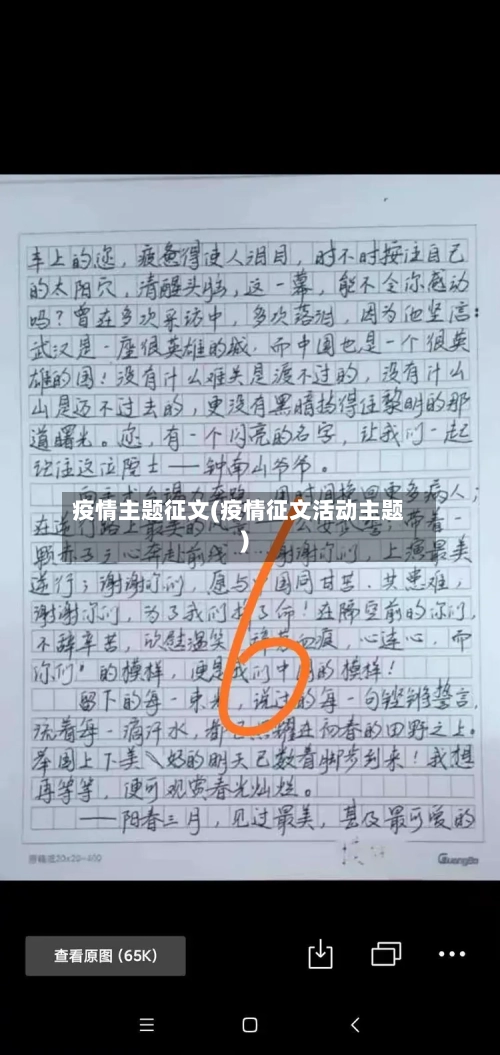 车上的您，疲惫得使人泪目，时不时按注自己
的太阳穴，清醒头脑，这一幕，能不令你感动
吗？曾在多次采访中，多次落泪，因为他坚信：
武汉是一座很英雄的城，而中国也是一个很英
雄的国！没有什么难关是渡不过的，没有什么
山是迈不过去的，更没有黑暗挡得住黎明的那
道曙光。您，有一个闪亮的名字，让我们一起
记住这位院士——钟南山爷爷。
病人；
疫情主题征文(疫情征文活动主题
)
在逆行路上最美的 带着一
颗赤子之心奔赴前线 谢谢你们，上演最美
逆行；谢谢你们，愿与 国同甘苦、共患难，
谢谢你们，为了我们 了命！在隔空前的你们，
不辞辛苦，欣慰温笑 血痕，心连心，而
“你们”的模样，便是我们中国的模样！
留下的每一束光，说过的每一句铿锵誓言，
流着每一滴汗水，都 在初春的田野之上。
举国上下美 好的明天已数着脚步到来！我想
再等等，便可观赏春光灿烂。
——阳春三月，见过最美，甚及最可爱的
6
20×20=400
GuangBo
查看原图 (65K)